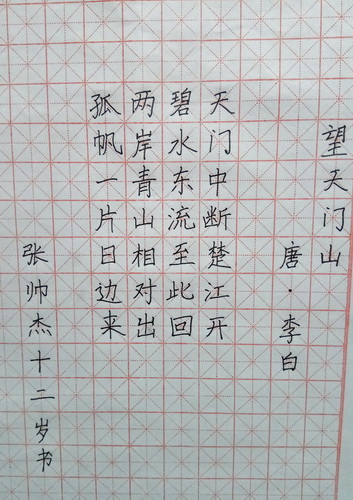 望天门山
唐·李白
天门中断楚江开
碧水东流至此回
两岸青山相对出
孤帆一片日边来
张帅杰十二岁书